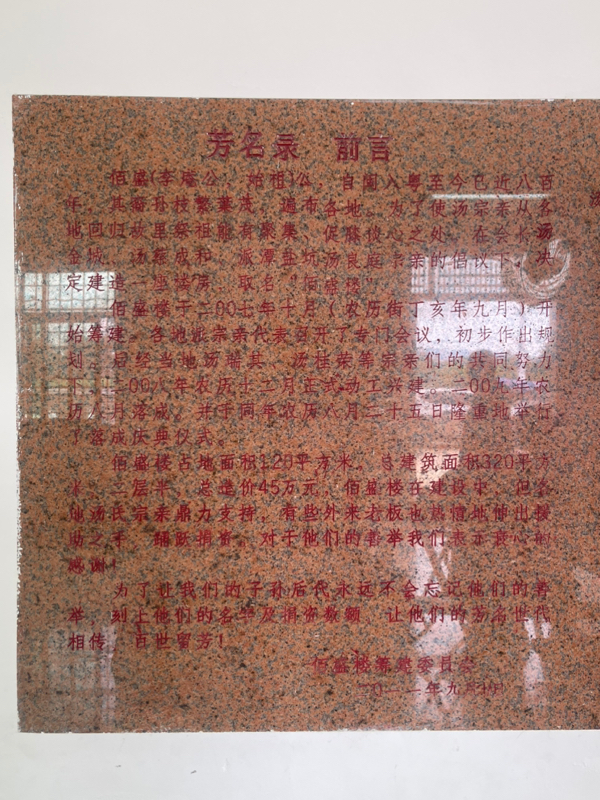 芳名录 前言
佰盛(李 公、始祖)公,自闽入粤至今已近八百
年,其裔孙枝繁叶茂,遍布各地。为了使汤宗亲从各
地回归故里祭祖能有聚集、促膝 心之处,在会长汤
金城、汤 成和 派潭 坑汤良庭宗亲的倡议下,决
定建造一座楼房,取名“佰盛楼”。
佰盛楼于二00七年十月(农历 丁亥年九月)开
始筹建。各地派宗亲代表召开了专门会议,初步作出规
划。后经当地汤 其、汤桂荣等宗亲们的共同努力
下,二00八年农历十二月正式动工兴建。二00九年农
历八月落成,并于同年农历八月二十五日隆重地举行
了落成庆典仪式。
佰盛楼占地面积120平方米,总建筑面积320平方
米,二层半,总造价45万元。佰盛楼在建设中,
地汤氏宗亲鼎力支持,有些外来老板也热情地伸出援
助之手,踊跃捐资。对于他们的善举我们表示衷心的
感谢!
为了让我们的子孙后代永远不会忘记他们的善
举,刻上他们的名字及捐资数额,让他们的芳名世代
相传,百世留芳!
佰盛楼筹建委员会
年九月